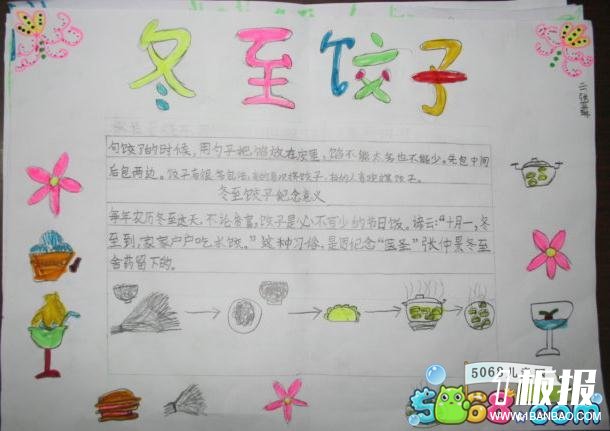 冬至饺子
二张
包饺子的时候,用勺子把馅放在皮里,馅不能太多也不能少。先包中间
后包两边。饺子有很多包法,有的喜欢挤饺子,有的人喜欢捏饺子。
冬至饺子纪念意义
每年农历冬至这天,不论贫富,饺子是必不可少的节日饭。谚云:“十月一,冬
至到,家家户户吃水饺。”这种习俗,是因纪念“医圣”张仲景冬至
舍药留下的。
5068儿童网
板报
5068.com
WWW.1BANBAO.COM